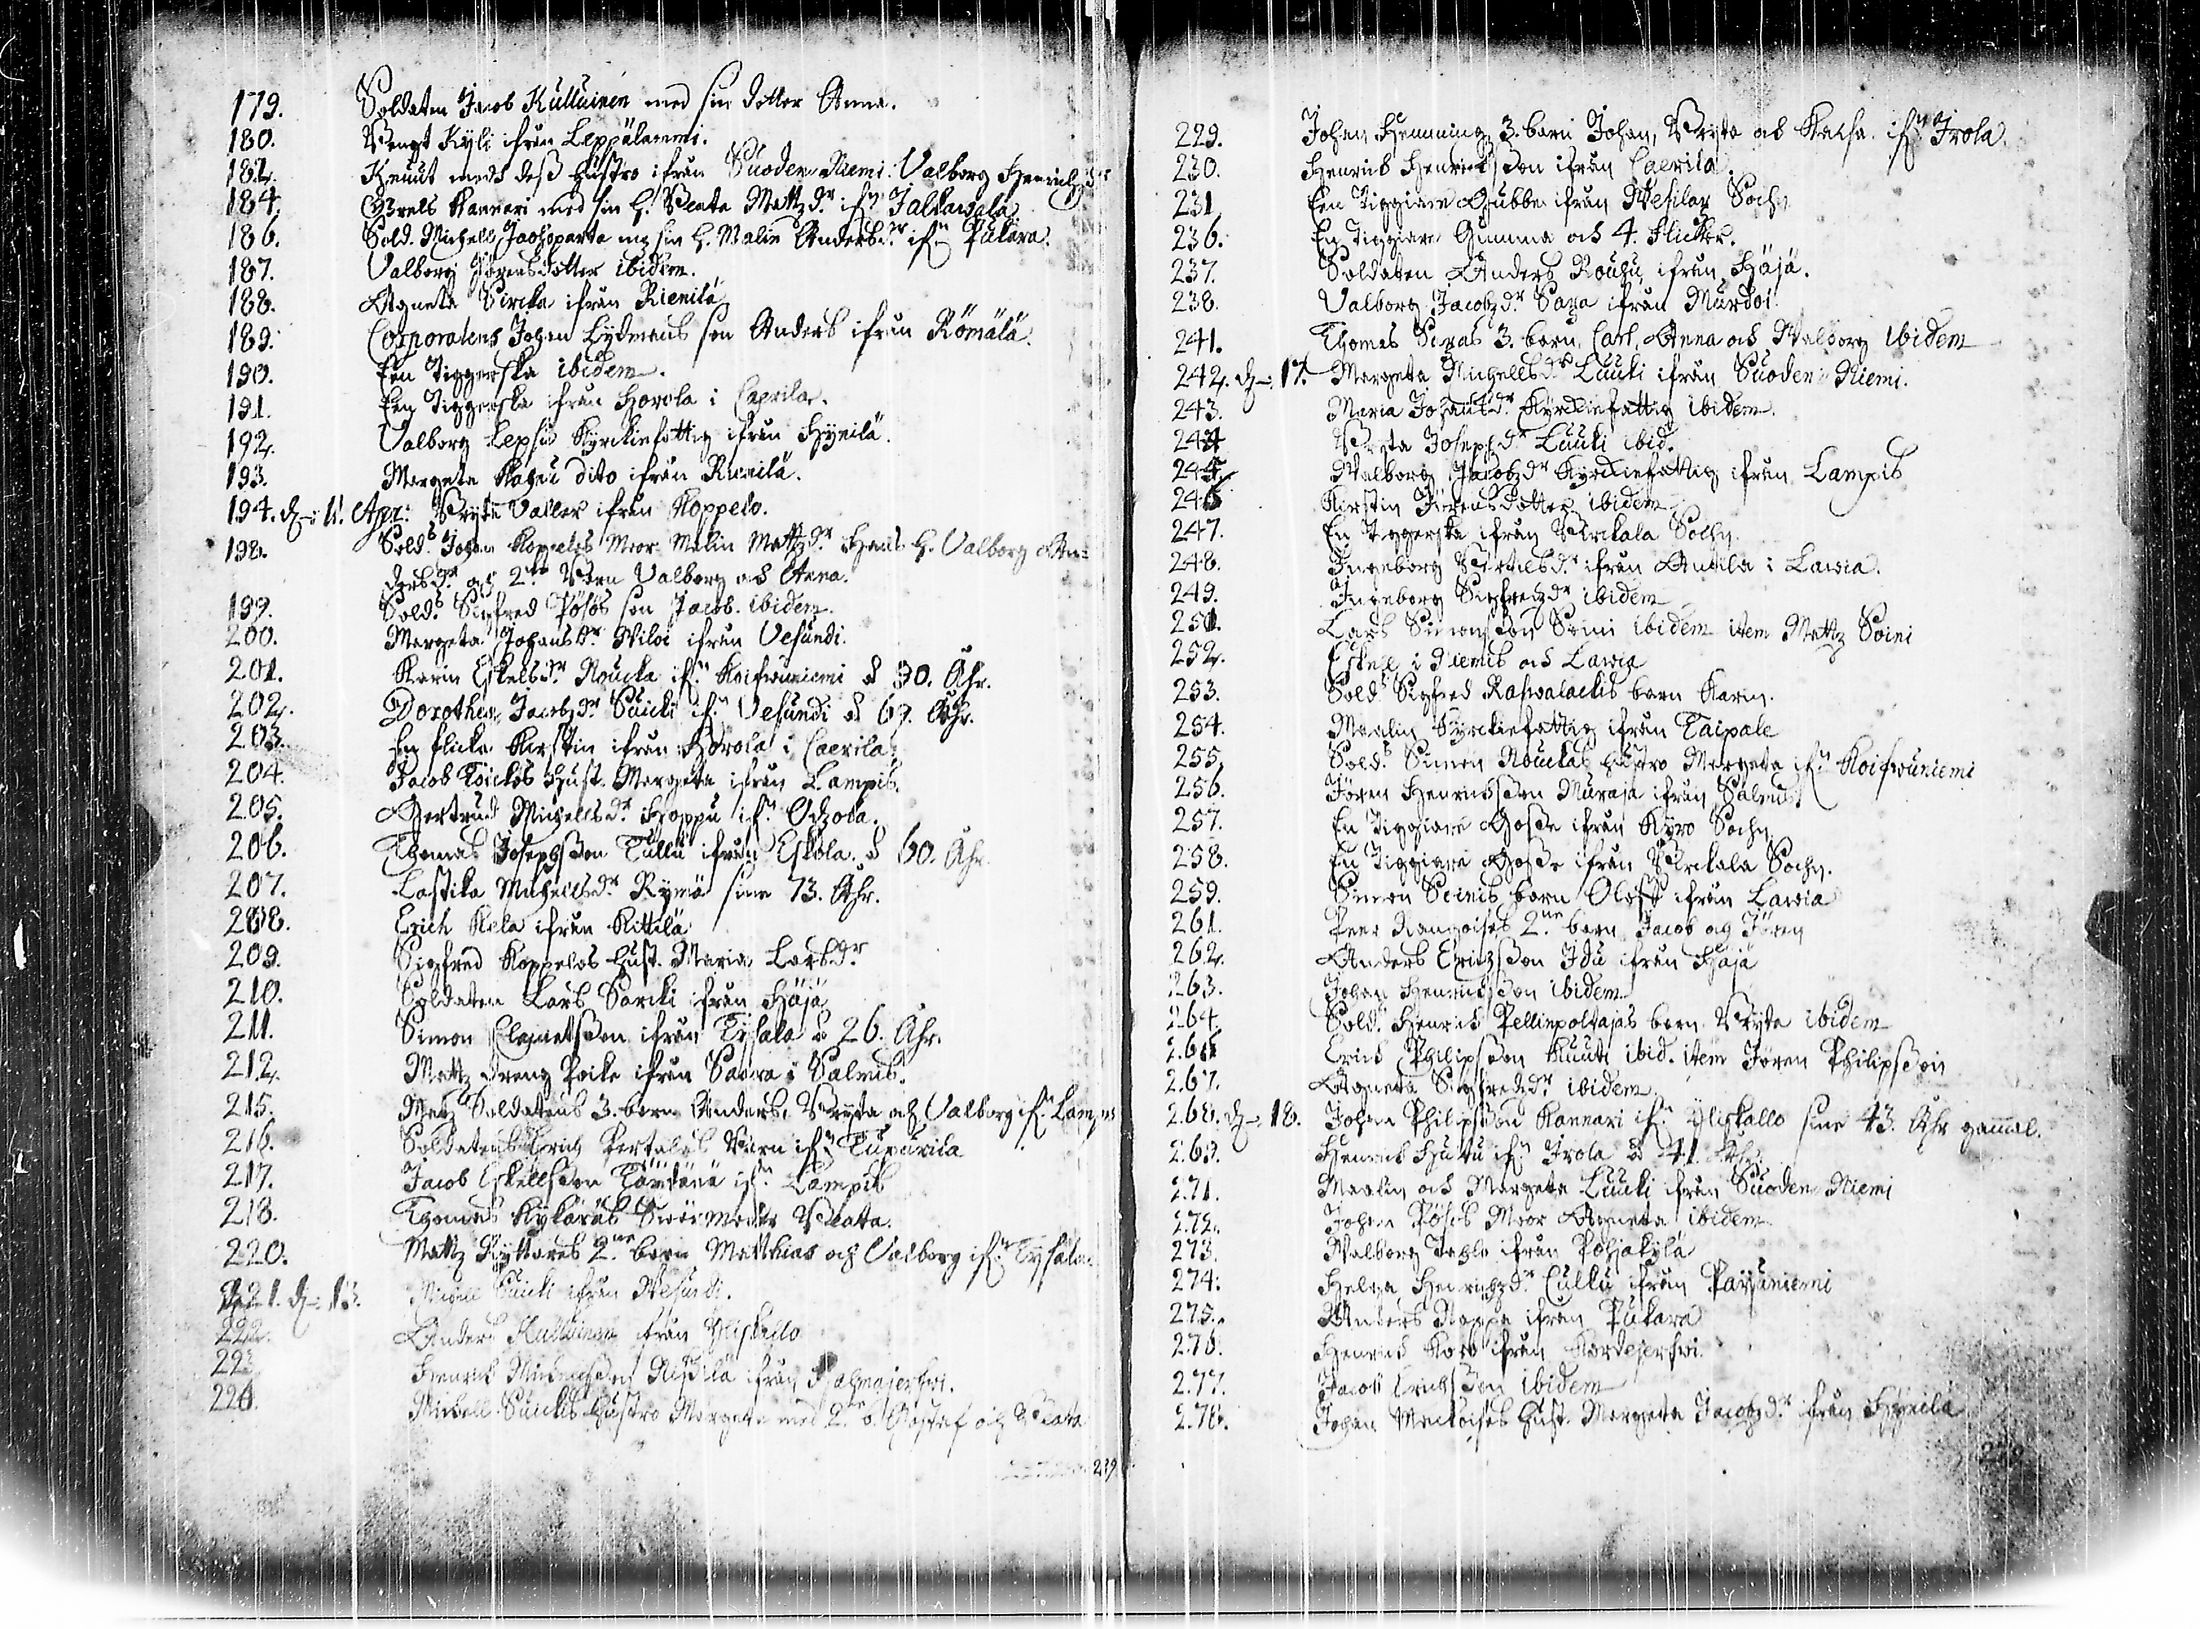 179. Soldaten Jacob Kulluinen med sin dotter Anna.
180. Bengt Kyli ifrån Leppälammi.
182. Knuut med deß hustro ifrån Suoden Niemi: Valborg Henrichzdr
184. Kannari med sin h. Beata Mattzdr. ifn
186. Sold. Michell Jaohoparta mz sin h. Malin Andersdr. ifn Pukara.
187. Valborg Jörensdotter ibidem.
188. Agneta Sircka ifrån Rienilä
189. Corporalens Johan Lydmans son Anders ifrån Römälä.
190. Een Tiggerska ibidem.
191. Een Tiggerska ifrån Horola i Caprila.
192. Valborg Lepsu Kyrckiefattig ifrån Hynilä.
193. Margeta Kahru dito ifrån Rienilä.
194. d. 11. Apr: Bryta Valler ifrån Koppelo.
198. Sold. Johan Koppelos Moor Malin Mattzdr. Hans h. Valborg An-
dersdr och 2ne Barn Valborg och Anna.
199. Sold. Sigfred Pösös son Jacob. ibidem.
200. Margeta Johansdr Viloi ifrån Vesundi.
201. Karin Eskelsdr. Roucka ifn Koifwuniemi 30. Åhr.
202. Dorothea Jacobzdr Suicki ifn Vesundi 69. Åhr.
203. En flicka Kerstin ifrån Horola i Caerila.
204. Jacob Köickös Hust. Margeta ifrån Lampis.
205. Gertrud Michelsdr. Hoppu ifn Ohola.
206. Thomas Josephsson Tullu ifrån Eskola. 60. Åhr.
207. Michelsdr Rymä sine 73. Åhr.
208. Erich Kela ifrån Kittilä
209. Sigfred Koppelos Hust. Maria Larsdr
210. Soldaten Lars Sarcki ifrån Häjä
211. Simon Clemetsson ifrån Tysala 26. Åhr.
212. Mattz Dreng Poike ifrån Savra i Salmis.
215. Matz Soldatens 3. barn Anders, Bryta och Valborg ifn Lampis
216. Soldatens Erich Pertulas Barn ifn Tupurila
217. Jacob Eskellsson ifn Lampis
218. Thomas Kyläräs Swärmoder Beata.
220. Mattz Ryttares 2ne barn Matthias och Valborg ifn Tysala.
221. d. 13. Michel Suicki ifrån Wesundi.
222. Anders Kulluinen ifrån Yliskallo
223. Henrich Michelsson ifrån
226. Michell Suickis Hustro Margeta med 2ne b. Gustaf och Beata
229. Johan Hemming 3. barn Johan, Bryta och Kaisa. ifn Irola.
230. Henrich Henrichsson ifrån Caerila.
231. Een Tiggiare Gubbe ifrån Wesilax Sochn
236. En Tiggiare Gumma och 4. flickor.
237. Soldaten Anders Rouhu ifrån Häjä.
238. Valborg Jacobzdr Sara ifrån Murdoi
241. Thomas 3. barn, Carl, Anna och Walborg ibidem
242. d. 17. Margeta Michellsdr Luuki ifrån Suoden Niemi.
243. Maria Johansdr. Kyrckiefattig ibidem.
244 Bryta Josephdr Luuki ibid.
245. Walborg Jacobzdr Kyrckiefattig ifrån Lampis
246 Kerstin Jörensdotter ibidem
247. En Tiggerska ifrån Birckala Sochn.
248. Ingeborg Bertilsdr. ifrån Anttila i Lawia.
249. Ingeborg Sigfredzdr ibidem
251. Lars Simonsson Soini ibidem item Mattz Soini
252. Eskell i Niemis och Lawia
253. Sold. Sigfred Rahwalackis barn Karin.
254. Maalin Kyrckiefattig ifrån Taipale
255. Sold. Simon Rouckas hustro Margeta ifn Koifwuniemi
256. Jören Henrichsson Muraja ifrån Salmis
257. En Tiggiare Gosse ifrån Kyro Sochn
258. En Tiggiare Gosse ifrån Birckala Sochn.
259. Simon Soinis barn Oloff ifrån Lawia
261. Peer Rangoises 2ne barn Jacob och Jören
262. Anders Erichsson Idu ifrån Häjä
263. Johan Henrichsson ibidem
264. Sold. Henrich Pellinpoltajas barn Bryta ibidem
266 Erich Philipsson Kuuti ibid. item Jören Philipsson
267. Agneta Sigfredzdr. ibidem
268. d. 18. Johan Philipsson Kannari ifn Yliskallo sine 43. Åhr gammal.
269. Henrich Hutu ifn Irola 41. Åhr.
271. Maalin och Margeta Luuki ifrån Suoden Niemi
272. Johan Pösös Moor Agneta ibidem
273. Walborg ifrån Pohjakylä
274. Helga Henrichzdr Cullu ifrån Pajuniemi
275. Anders Rappa ifrån Pukara
276. Henrich Koro ifrån Kordesjerfwi
277. Jacob Erichsson ibidem
278. Johan Hust. Margeta Jacobzdr. ifrån Hynilä
239